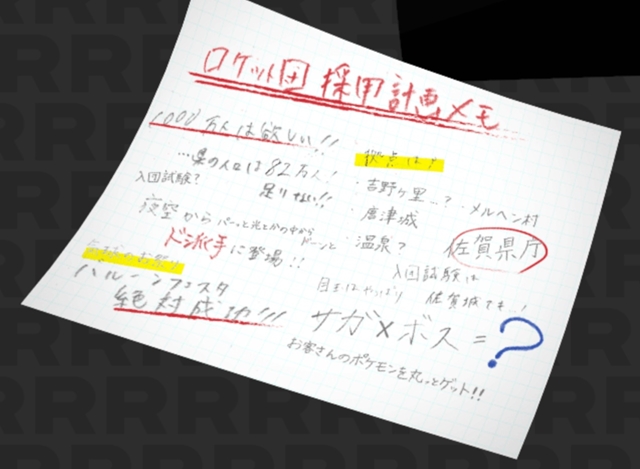 ロケット団 採用計画メモ
1000万人は欲しい!!
…県の人口は82万人!
足りない!!
入団試験?
夜空からパーッと光とかの中から
ドーンと
ド派手に登場!!
気球のお祭り
バルーンフェスタ
絶対成功!!!
拠点は?
・吉野ヶ里…?
・メルヘン村
・唐津城
・温泉?
佐賀県庁
入団試験は
佐賀城でも!
目玉はやっぱり
サガ×ボス=?
お客さんのポケモンを丸っとゲット!!
RRRRR